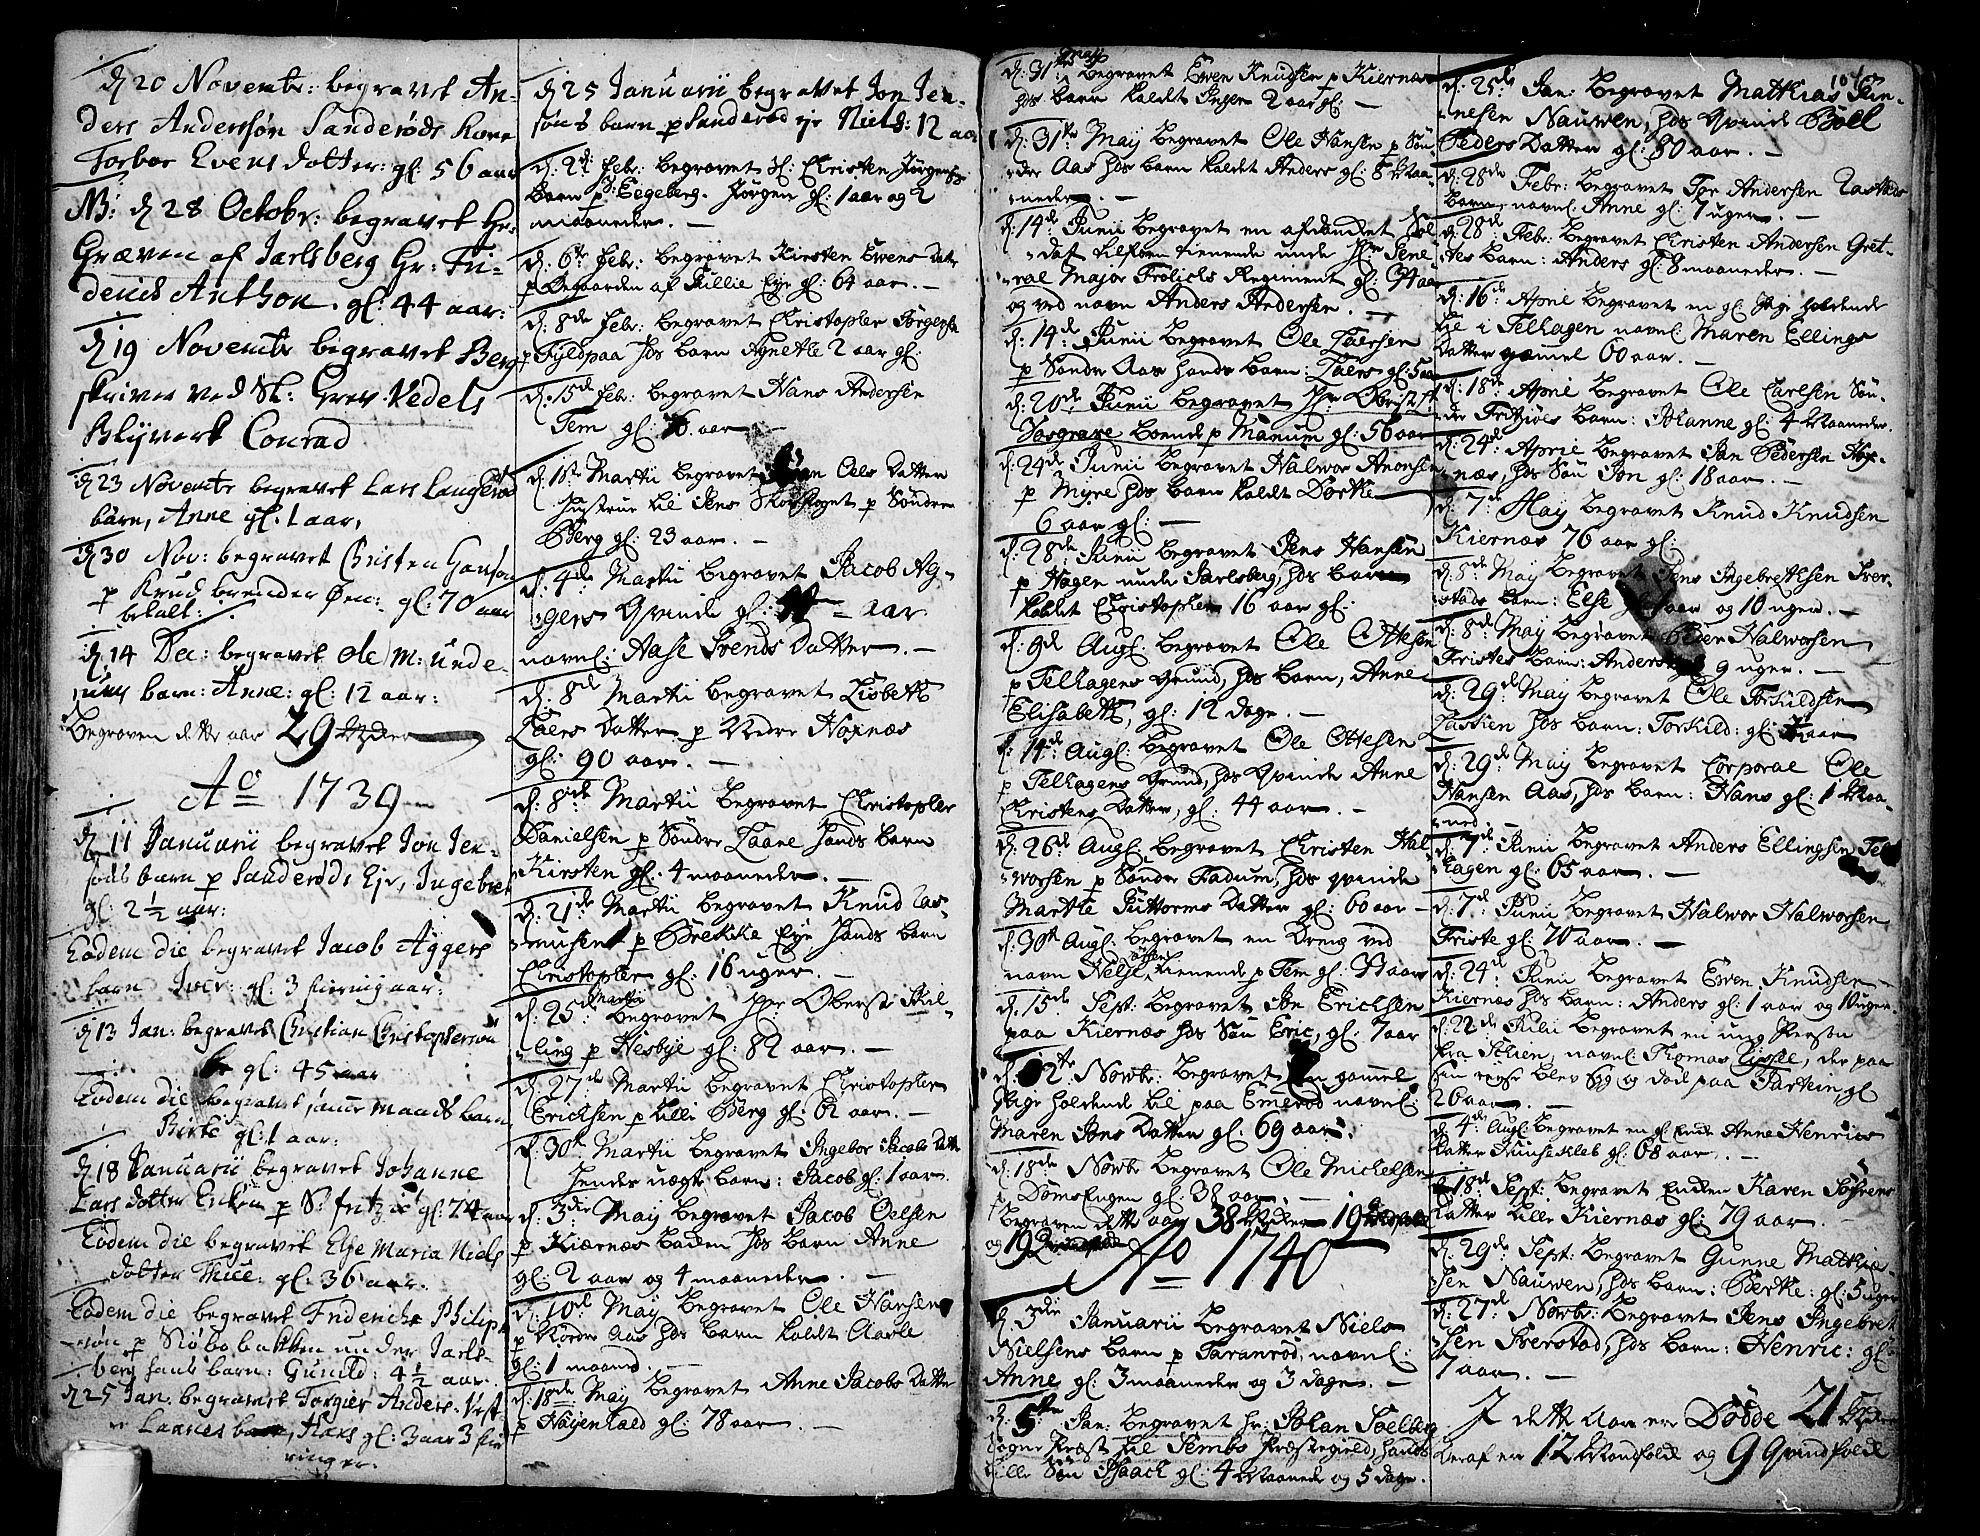 d 20 Novembr: begravet An-
ders Andersøn Sanderøds Kone
Torbor Evens dotter: gl: 56 aar
NB: d 28 Octobr: begravet Hr:
Græven af Jarlsberg Hr: Fri-
derich Anthon. gl: 44 aar:
d 19 Novembr begravet Berg
skriver ved Sl: Grev Vedels
Blyverk Conrad
d 23 Novembr begravet Lars
barn, Anne gl. 1 aar,
d 30 Nov: begravet Christen Hansøn
p Krud brender Øen: gl: 70 aar
betalt:
d 14 Dec: begravet Ole M: unde-
barn: Anne: gl: 12 aar:
Begraven dette aar 29
Ao 1739
d 11 Januarii begravet Jon Jen-
søns barn p Sanderøds Eje, Ingebret
gl: 2 1/2 aar:
Eodem die begravet Jacob Aggers
barn Iver: gl: 3 fiering aar:
d 13 Jan: begravet Christian Christophersøn
gl: 45 aar
Eodem die begravet samme Mands barn
Birte gl: 1 aar:
d 18 Januarii begravet Johanne
Lars dotter Enken p S: fritzøe gl: 74 aar
Eodem die begravet Else Maria Niels
dotter gl: 36 aar.
Eodem die begravet Friderich Philip-
søn p Slobo bakken under Jarls-
berg hans barn: Gunild: 4 1/2 aar.
d 25 Jan: begravet Torgier Anders: Vest-
re Laanes barn, Hans gl: 3 aar 3 fie
ringer.
d 25 Januarii begravet Jon Jen-
søns barn p Sanderød eje Niels: 12 aar
d: 2d Febr: begravet Sl: Christen Jørgens
Barn p Eegeberg. Jørgen gl: 1 aar og 2
maaneder. —
d: 6te Febr: begravet Kirsten Evens Datr
p Øegaarden af Skillie Eye gl: 64 aar. —
d: 8de Febr: begravet Christopher Jørgensen
p Fyldpaa hds barn Agnethe 2 aar gl:
d: 15de Febr: begravet Hans Andersen
Tem gl: aar
d: 1st Martii begravet Oels Datter
Hustrue til Jens Skovfoget p Søndre
Berg gl: 23 aar. —
d: 4de Martii begravet Jacob Ag-
gers Qvinde gl: aar
navnl: Aase Svends Datter. —
d: 8de Martii begravet Lisbeth
Laers Datter p Nedre Hoxnæs
gl: 90 aar. —
d: 8de Martii begravet Christopher
Danielsen p Søndre Laane hands barn
Kirsten gl: 4 maaneder. —
d: 21de Martii begravet Knud Ras-
musen p Brekke Eye hands barn
Christopher gl: 16 uger. —
d: 25de Martii begravet Hr: Oberst Skil-
ling p Hesbye gl: 82 aar. —
d: 27de Martii begravet Christopher
Erichsen p Lilli Berg gl: 62 aar. —
d: 30te Martii begravet Ingebor Jacobs Datr
hendes uægte barn: Jacob gl: 1 aar.
d: 3die May begravet Jacob Oelsen
p Kiærnæs hds barn Anne
gl: 2 aar og 4 maaneder. —
d: 10de May begravet Ole Hansen
p Nordre Aas hds barn kaldt
gl: 1 maaned. —
d: 18de May begravet Anne Jacobs Datter
p Nøyen kald gl: 78 aar —
d: 31te May begravet Even Knudsen p Kiernæs
hds barn kaldet Inger 2 aar gl: —
d: 31te May begravet Ole Hansen p Søn-
dre Aas hds barn kaldet Anders gl: 8 Maa-
neder. —
d: 14de Junii begravet en afdancket Sol
dat tilforn tienende unde Hr Gene-
ral Major Frølichs Regiment gl: aar
og ved navn Anders Andersen. —
d: 14de Junii begravet Ole Laersen
p Søndre Aas hands barn: Laers gl: 5 aar
d: 20de Junii begravet Hr Obristlt
Vosgrave boende p Manum gl: 56 aar
d: 24de Junii begravet Halvor Anonsen
p Myre hds barn kaldt Dorthe
6 aar gl: —
d: 28de Junii begravet Jens Hansen
p Hagen unde Jarlsberg, hds barn
kaldet Christopher 16 aar gl:
d: 9de Augl: begravet Ole Ottesen
p Telhagens Grund, hds barn, Anne
Elisabeth, gl: 12 dage. —
d: 14de Augl: begravet Ole Ottesen
p Telhagens Grund, hds Qvinde Anne
Christens Datter, gl: 44 aar. —
d: 26de Augl: begravet Christen Hal
vorsen p Søndr Fadum, hds qvinde
Marthe Guttorms Datter gl: 60 aar —
d: 30te Augl: begravet en Dreng ved
navn Helje tienende p Tem gl: aar
d: 15de Sept: begravet Jon Erichsen
paa Kiernæs hds Søn Eric, gl: 7 aar
d: 12te Novbr: begravet en gammel
Pige holdende til paa Emerød navnl:
Maren Jens Datter gl: 69 aar:
d: 18de Novbr begravet Ole Michelsen
p Doms Engen gl: 38 aar. —
Begraven dette aar 38 19
og 19
Ao 1740
d: 3die Januarii begravet Niels
Nielsens barn p Taranrød, navnl:
Anne gl: 3 maaneder og 3 dage. —
d: 5te Jan: begravet hr: Johan
Sogne Præst til Sembs Præstegield, hands
lille Søn Isaach gl: 4 Maaneder og 5 dage.
104
d: 25de Jan: begravet Mathias
nesen Nauwen, hds Qvinde Boel
Peders Datter gl: 80 aar. —
d: 28de Febr: begravet Tor Andersen
Barn, navnl: Anne gl: 7 uger. —
d: 28de Febr: begravet Christen Andersen Gret-
tes barn: Anders gl: 8 maaneder. —
d: 16de April begravet en gl Pige holdende
til i Telhagen navnl: Maren Ellings
Datter gammel 60 aar. —
d: 18de April begravet Ole Carlsen Søn-
dre Fritzøes barn: Johanne gl: 4 Maaneder.
d: 24de April begravet Jan Pedersen Hox-
næs, hds Søn Jon gl: 18 aar. —
d: 7de May begravet Knud Knudsen
Kiernæs 76 aar gl:
d: 8de May begravet Jens Ingebrethsen Frer-
stads barn: Else gl: 1 aar og 10 uger. —
d: 8de May begravet Peder Halvorsen
Fristes barn: Anders gl: 9 uger. —
d: 29de May begravet Ole Torkildsen
hds barn: Torkild: gl: aar
d: 29de May begravet Corporal Ole
Hansen Aas, hds barn: Hans gl: 1 Maa-
ned. —
d: 7de Junii begravet Anders Ellingsen Tel
hagen gl: 65 aar. —
d: 7de Junii begravet Halvor Halvorsen
Friste gl: 70 aar. —
d: 24de Junii begravet Even Knudsen —
Kiernæs hds barn: Anders gl: 1 aar og 10 uger
d: 22de Julii begravet en ung Person
fra Schien, navnl: Thomas, der paa
sin reyse blev syg og død paa Jartein gl
26 aar. —
d: 4de Augl: begravet en gl Enke Anne Henrics
Datter Huusekleb gl: 68 aar. —
d: 18de Sept: begravet Enken Karen Søfrens
Datter Lille Kiernæs gl: 79 aar. —
d: 29de Sept: begravet Gunne Mathia-
sen Nauwen, hds barn: Berthe: gl: 5 uger
d: 27de Novbr: begravet Jens Ingebret
sen Frerstad, hds barn: Henric: gl:
7 aar. —
I dette Aar ere Døde 21
deraf er 12 Mandfolk og 9 Qvindfolk